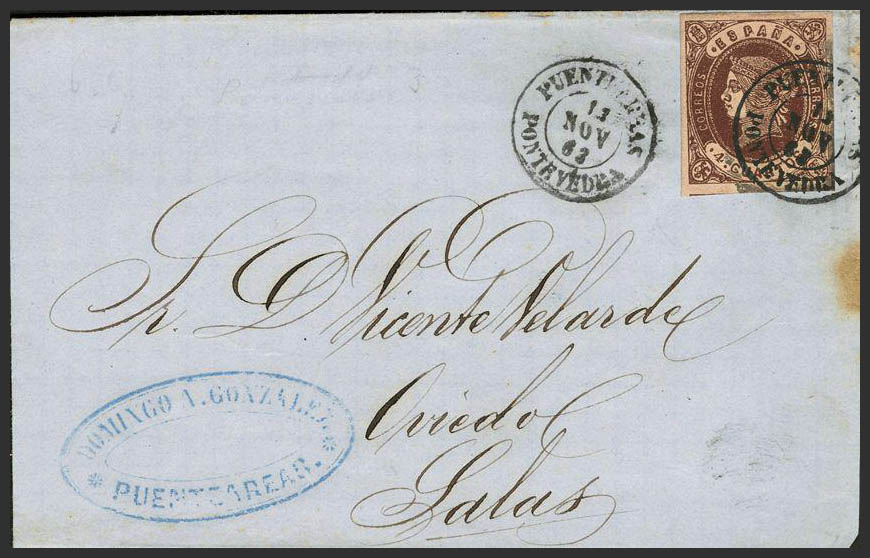 PUENTEAREAS
13
NOV
63
PONTEVEDRA
ESPAÑA
CORREOS
4 Cs
13
NOV
63
PONTEVEDRA
Sr. D Vicente Velarde
Oviedo
Salas
DOMINGO A. GONZALEZ.
PUENTEAREAS.